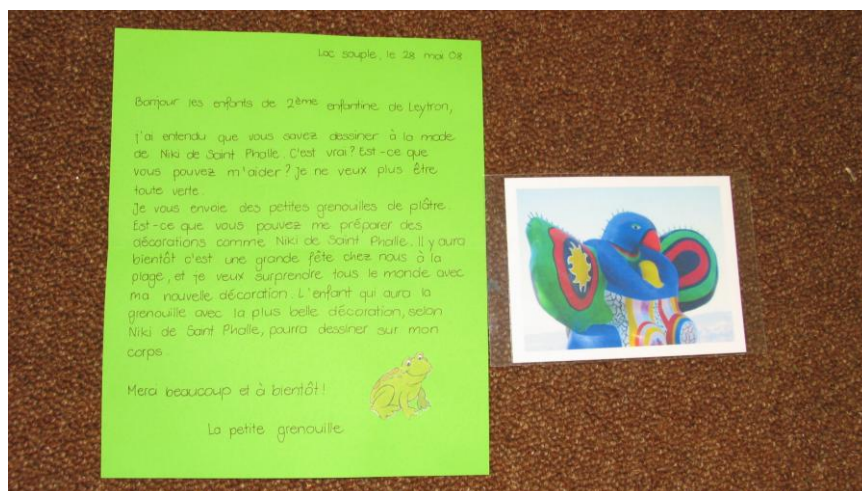 Lac souple, le 28 mai 08
Bonjour les enfants de 2ème enfantine de Leytron,
j'ai entendu que vous savez dessiner à la mode
de Niki de Saint Phalle. C'est vrai? Est-ce que
vous pouvez m'aider? Je ne veux plus être
toute verte.
Je vous envoie des petites grenouilles de plâtre.
Est-ce que vous pouvez me préparer des
décorations comme Niki de Saint Phalle. Il y aura
bientôt c'est une grande fête chez nous à la
plage, et je veux surprendre tous le monde avec
ma nouvelle décoration. L'enfant qui aura la
grenouille avec la plus belle décoration, selon
Niki de Saint Phalle, pourra dessiner sur mon
corps.
Merci beaucoup et à bientôt!
La petite grenouille